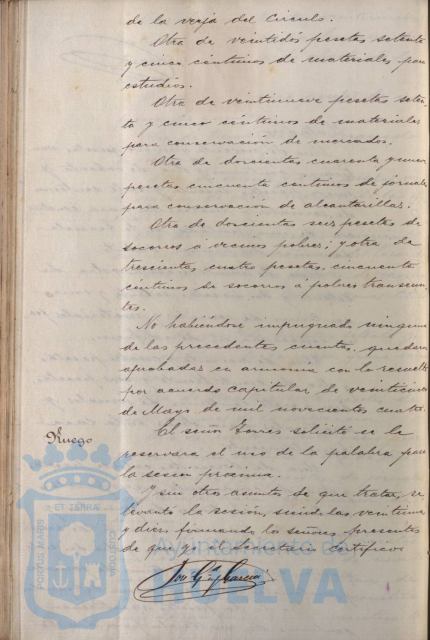 de la verja del Circulo.
Otra de veintidós pesetas setenta
y cinco céntimos de materiales para
estudios.
Otra de veintinueve pesetas seten-
ta y cinco céntimos de materiales
para conservación de mercados.
Otra de doscientas cuarenta y nueve
pesetas cincuenta céntimos de jornales
para conservación de alcantarillas.
Otra de doscientas seis pesetas de
socorros a vecinos pobres; y otra de
trescientas cuatro pesetas, cincuenta
céntimos de socorros a pobres transeun-
tes.
No habiéndose impugnado ninguna
de las precedentes cuentas, quedaron
aprobadas en armonia con lo resuelto
por acuerdo capitular de veinticinco
de Mayo de mil novecientos cuatro.
Ruego
El señor Torres solicitó se le
reservara el uso de la palabra para
la sesión próxima.
Y sin otros asuntos de que tratar, se
levantó la sesión, siendo las veintiuna
y diez, firmando los señores presentes
de que yo el Secretario certifico=
PORTUS MARIS ET TERRÆ CUSTODIA
Ayuntamiento de
HUELVA